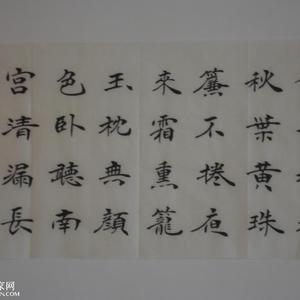 秋葉黃珠
簾不捲夜
來霜熏籠
玉枕無顏
色臥聽南
宮清漏長
家网